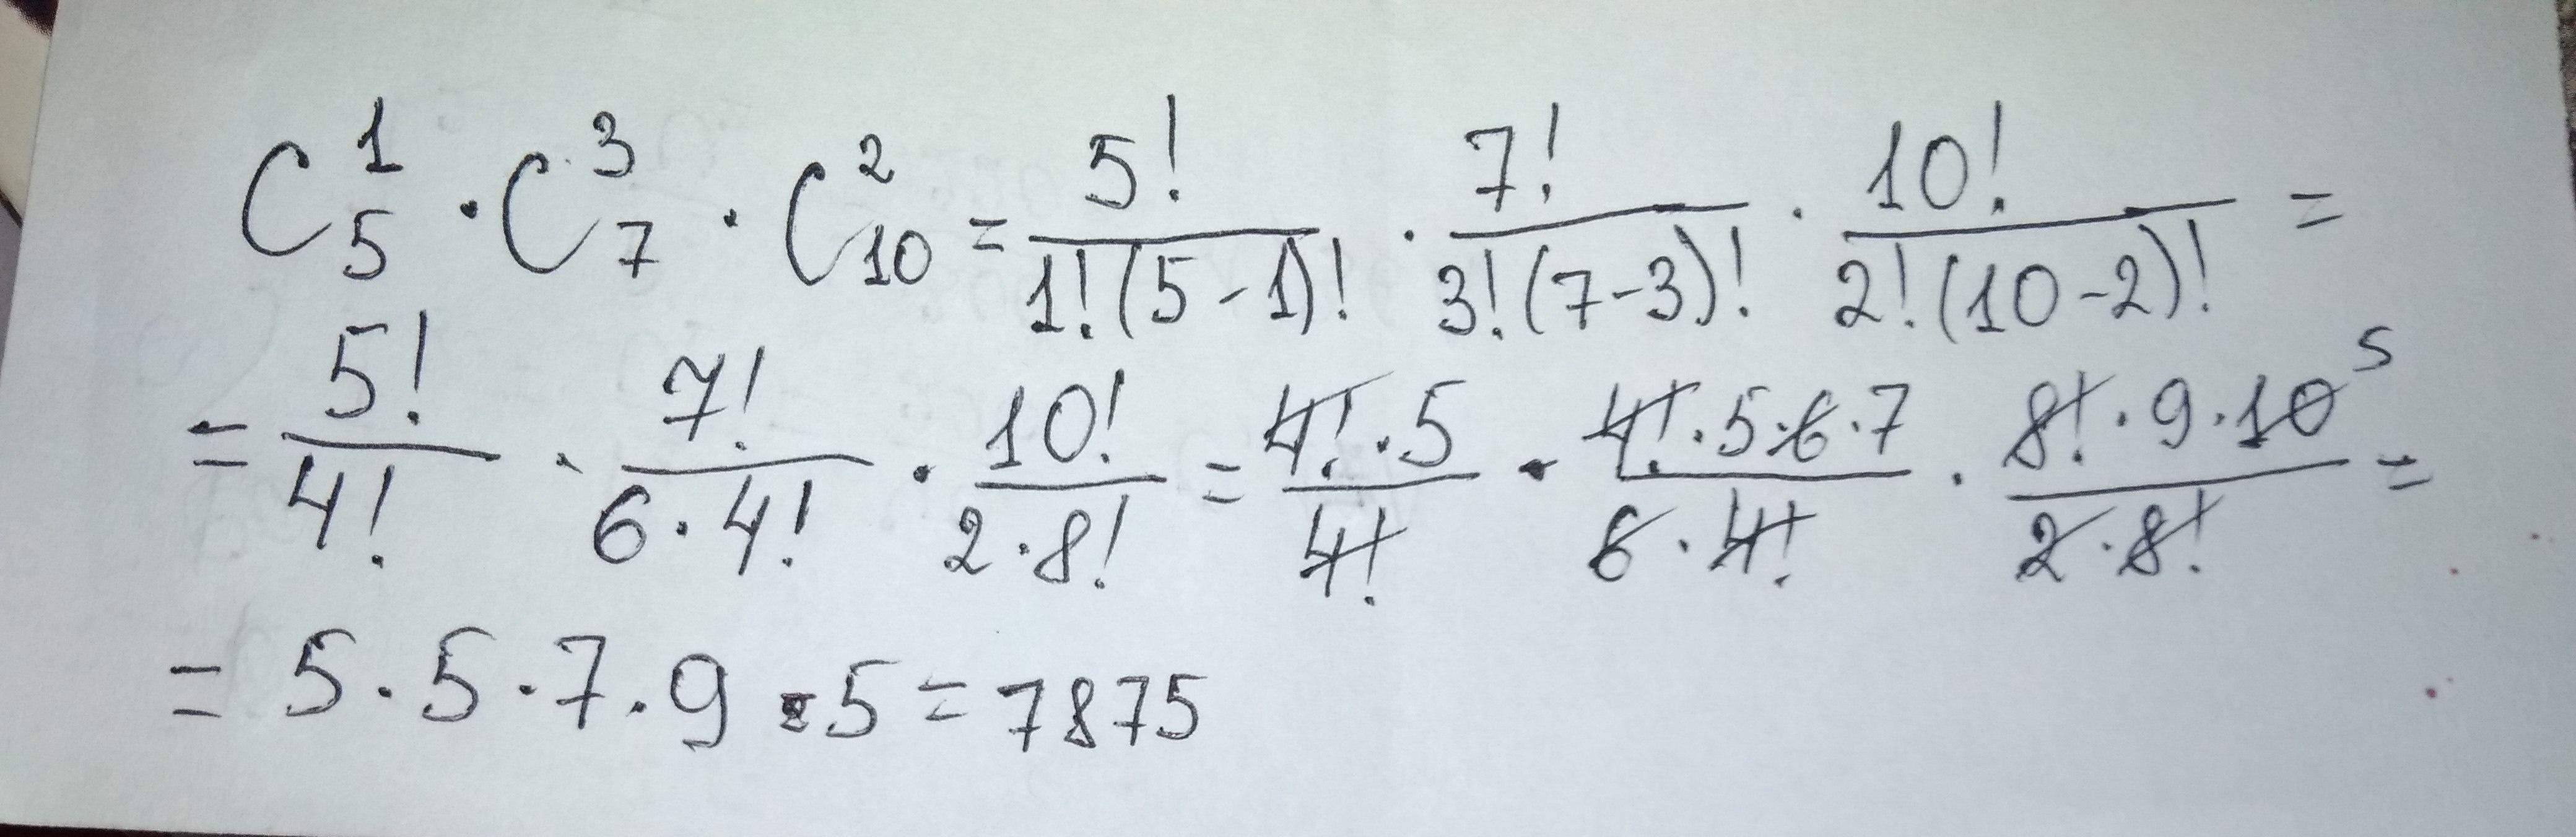 C_5^1 · C_7^3 · C_10^2 = 5!/(1!(5-1)!) · 7!/(3!(7-3)!) · 10!/(2!(10-2)!) =
= 5!/4! · 7!/(6·4!) · 10!/(2·8!) = (4!·5)/4! · (4!·5·6·7)/(6·4!) · (8!·9·10^5)/(2·8!) =
= 5·5·7·9·5 = 7875